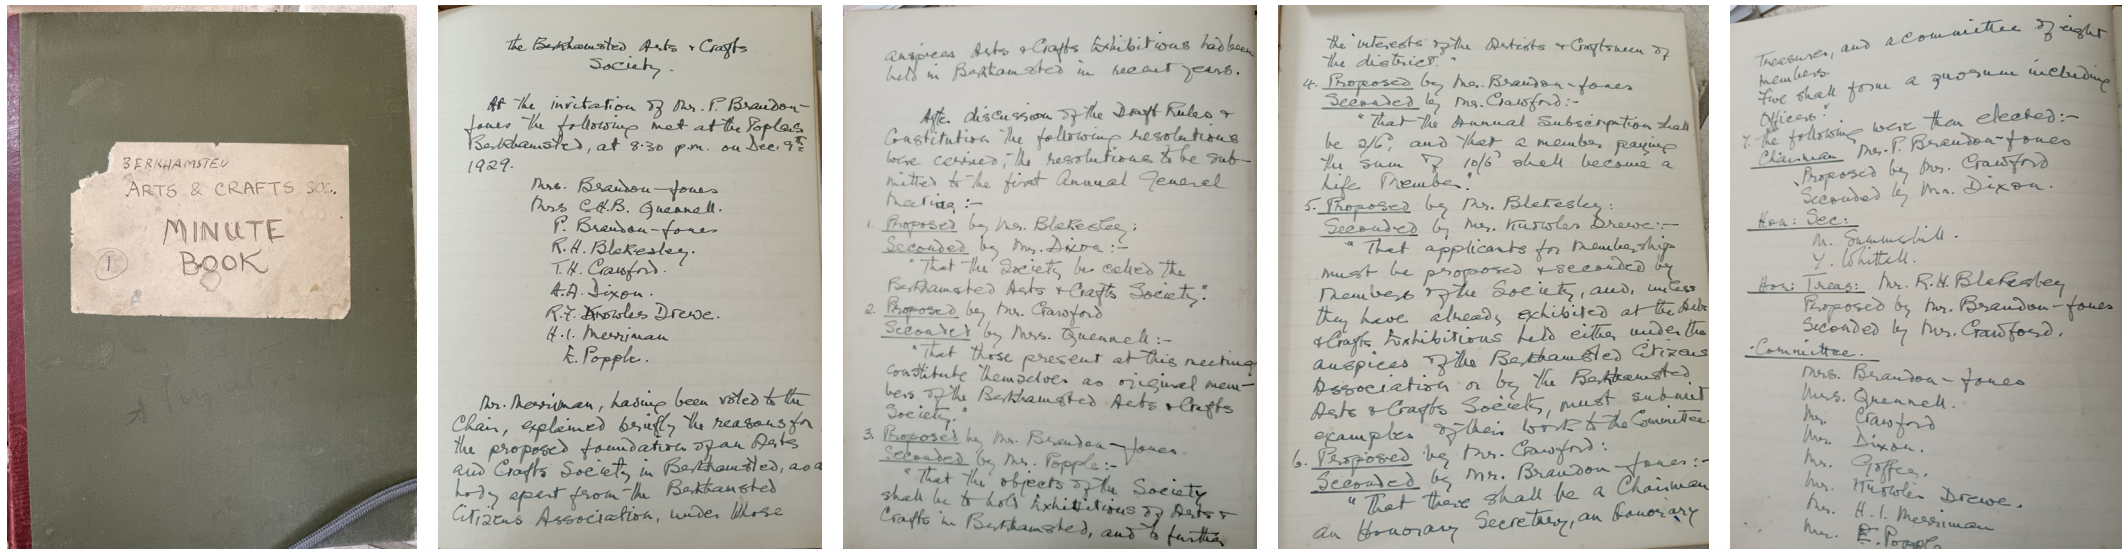 BERKHAMSTED
ARTS & CRAFTS SOC.
MINUTE
BOOK
1
The Berkhamsted Arts & Crafts
Society.
At the invitation of Mr. P. Brandon-
Jones the following met at the Poplars
Berkhamsted, at 8:30 p.m. on Dec. 9th
1929.
Mrs. Brandon-Jones
Mrs C.H.B. Quennell.
P. Brandon-Jones
R.H. Blakesley.
T.H. Crawford.
A.A. Dixon.
R.F. Knowles Drewe.
H.I. Merriman
E. Popple.
Mr. Merriman, having been voted to the
Chair, explained briefly the reasons for
the proposed foundation of an Arts
and Crafts Society in Berkhamsted, as a
body apart from the Berkhamsted
Citizens Association, under whose
auspices Arts & Crafts Exhibitions had been
held in Berkhamsted in recent years.
After discussion of the Draft Rules &
Constitution the following resolutions
were carried, the resolutions to be sub-
mitted to the first Annual General
Meeting :-
1. Proposed by Mr. Blakesley:
Seconded by Mr. Dixon:-
"That the Society be called the
Berkhamsted Arts & Crafts Society".
2. Proposed by Mr. Crawford
Seconded by Mrs. Quennell:-
"That those present at this meeting
constitute themselves as original mem-
bers of the Berkhamsted Arts & Crafts
Society."
3. Proposed by Mr. Brandon-Jones.
Seconded by Mr. Popple:-
"That the objects of the Society
shall be to hold Exhibitions of Arts &
Crafts in Berkhamsted, and to further
the interests of the Artists & Craftsmen of
the district."
4. Proposed by Mr. Brandon-Jones
Seconded by Mr. Crawford:-
"That the Annual Subscription shall
be 2/6, and that a member paying
the sum of 10/6 shall become a
Life Member."
5. Proposed by Mr. Blakesley:
Seconded by Mr. Knowles Drewe:-
"That applicants for membership
must be proposed & seconded by
members of the Society, and, unless
they have already exhibited at the Arts
& Crafts Exhibitions held either under the
auspices of the Berkhamsted Citizens
Association or by the Berkhamsted
Arts & Crafts Society, must submit
examples of their work to the Committee.
6. Proposed by Mr. Crawford:
Seconded by Mr. Brandon-Jones:-
"That there shall be a Chairman
an Honorary Secretary, an honorary
Treasurer, and a committee of eight
members.
Five shall form a quorum including
Officers".
7. The following were then elected:-
Chairman Mr. P. Brandon-Jones
Proposed by Mr. Crawford
Seconded by Mr. Dixon.
Hon: Sec:
M. Summerhill.
Y. Whittall.
Hon: Treas: Mr. R.H. Blakesley
Proposed by Mr. Brandon-Jones
Seconded by Mr. Crawford.
Committee.
Mrs. Brandon-Jones
Mrs. Quennell.
Mr. Crawford
Mr. Dixon.
Mr. Goffey.
Mr. Knowles Drewe.
Mr. H.I. Merriman
Mr. E. Popple